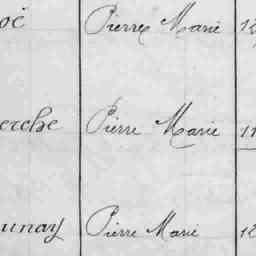 oë Pierre Marie 12
erche Pierre Marie 11
unay Pierre Marie 12